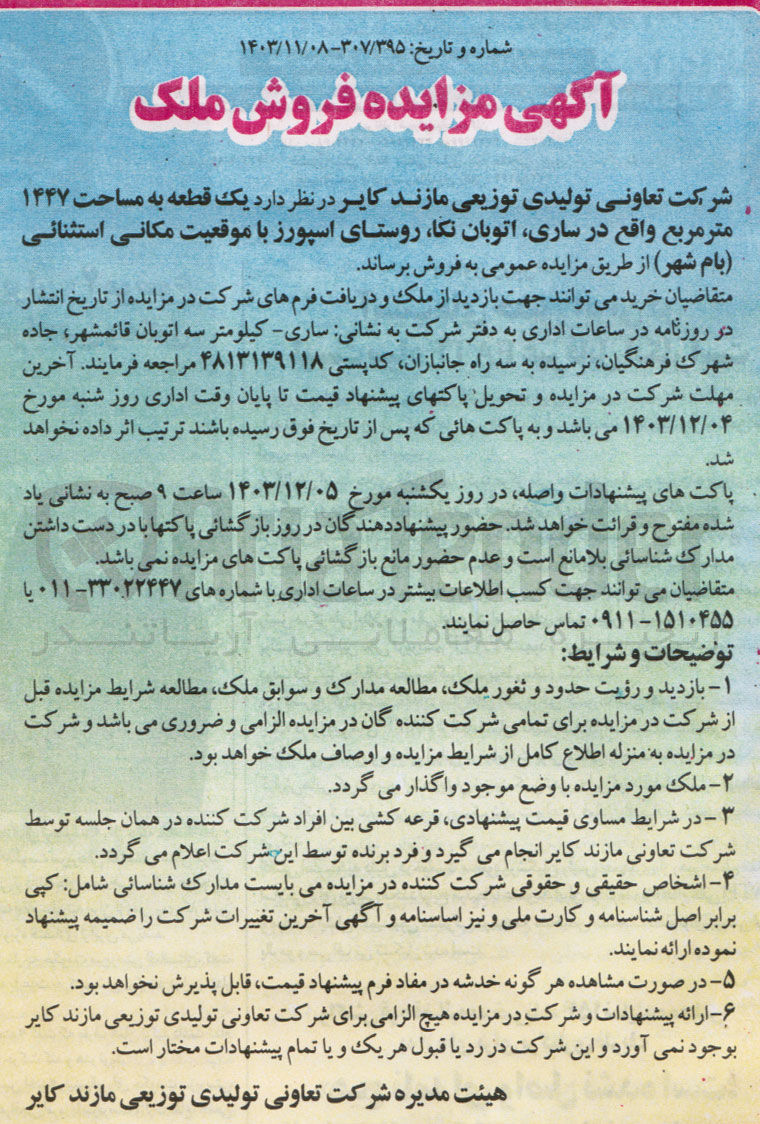 شماره و تاریخ: ۳۰۷/۳۹۵-۱۴۰۳/۱۱/۰۸
آگهی مزایده فروش ملک
شرکت تعاونی تولیدی توزیعی مازند کایر در نظر دارد یک قطعه به مساحت ۱۴۴۷
مترمربع واقع در ساری، اتوبان نکا، روستای اسپورز با موقعیت مکانی استثنائی
(بام شهر) از طریق مزایده عمومی به فروش برساند.
متقاضیان خرید می توانند جهت بازدید از ملک و دریافت فرم های شرکت در مزایده از تاریخ انتشار
در روزنامه در ساعات اداری به دفتر شرکت به نشانی: ساری- کیلومتر سه اتوبان قائمشهر، جاده
شهرک فرهنگیان، نرسیده به سه راه جانبازان، کدپستی ۴۸۱۳۱۳۹۱۱۸ مراجعه فرمایند. آخرین
مهلت شرکت در مزایده و تحویل پاکتهای پیشنهاد قیمت تا پایان وقت اداری روز شنبه مورخ
۱۴۰۳/۱۲/۰۴ می باشد و به پاکت هائی که پس از تاریخ فوق رسیده باشند ترتیب اثر داده نخواهد
شد.
پاکت های پیشنهادات واصله، در روز یکشنبه مورخ ۱۴۰۳/۱۲/۰۵ ساعت ۹ صبح به نشانی یاد
شده مفتوح و قرائت خواهد شد. حضور پیشنهاددهندگان در روز بازگشائی پاکتها با در دست داشتن
مدارک شناسائی بلامانع است و عدم حضور مانع بازگشائی پاکت های مزایده نمی باشد.
متقاضیان می توانند جهت کسب اطلاعات بیشتر در ساعات اداری با شماره های ۳۳۰۲۲۴۴۷-۰۱۱ یا
۱۵۱۰۴۵۵-۰۹۱۱ تماس حاصل نمایند.
توضیحات و شرایط:
۱- بازدید و رؤیت حدود و ثغور ملک، مطالعه مدارک و سوابق ملک، مطالعه شرایط مزایده قبل
از شرکت در مزایده برای تمامی شرکت کننده گان در مزایده الزامی و ضروری می باشد و شرکت
در مزایده به منزله اطلاع کامل از شرایط مزایده و اوصاف ملک خواهد بود.
۲- ملک مورد مزایده با وضع موجود واگذار می گردد.
۳- در شرایط مساوی قیمت پیشنهادی، قرعه کشی بین افراد شرکت کننده در همان جلسه توسط
شرکت تعاونی مازند کایر انجام می گیرد و فرد برنده توسط این شرکت اعلام می گردد.
۴- اشخاص حقیقی و حقوقی شرکت کننده در مزایده می بایست مدارک شناسائی شامل: کپی
برابر اصل شناسنامه و کارت ملی و نیز اساسنامه و آگهی آخرین تغییرات شرکت را ضمیمه پیشنهاد
نموده ارائه نمایند.
۵- در صورت مشاهده هر گونه خدشه در مفاد فرم پیشنهاد قیمت، قابل پذیرش نخواهد بود.
۶- ارائه پیشنهادات و شرکت در مزایده هیچ الزامی برای شرکت تعاونی تولیدی توزیعی مازند کایر
بوجود نمی آورد و این شرکت در رد یا قبول هر یک و یا تمام پیشنهادات مختار است.
هیئت مدیره شرکت تعاونی تولیدی توزیعی مازند کایر